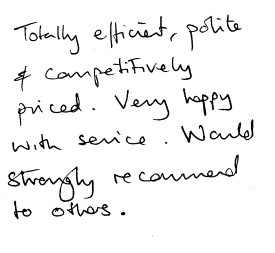 Totally efficient, polite
& competitively
priced. Very happy
with service. Would
strongly recommend
to others.